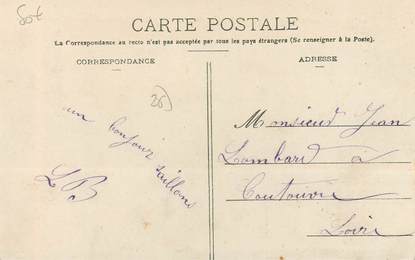 50€
CARTE POSTALE
La Correspondance au recto n'est pas acceptée par tous les pays étrangers (Se renseigner à la Poste).
CORRESPONDANCE
ADRESSE
26
un bonjour
LB
Monsieur Jean
Lombard à
Coutouvre
Loire